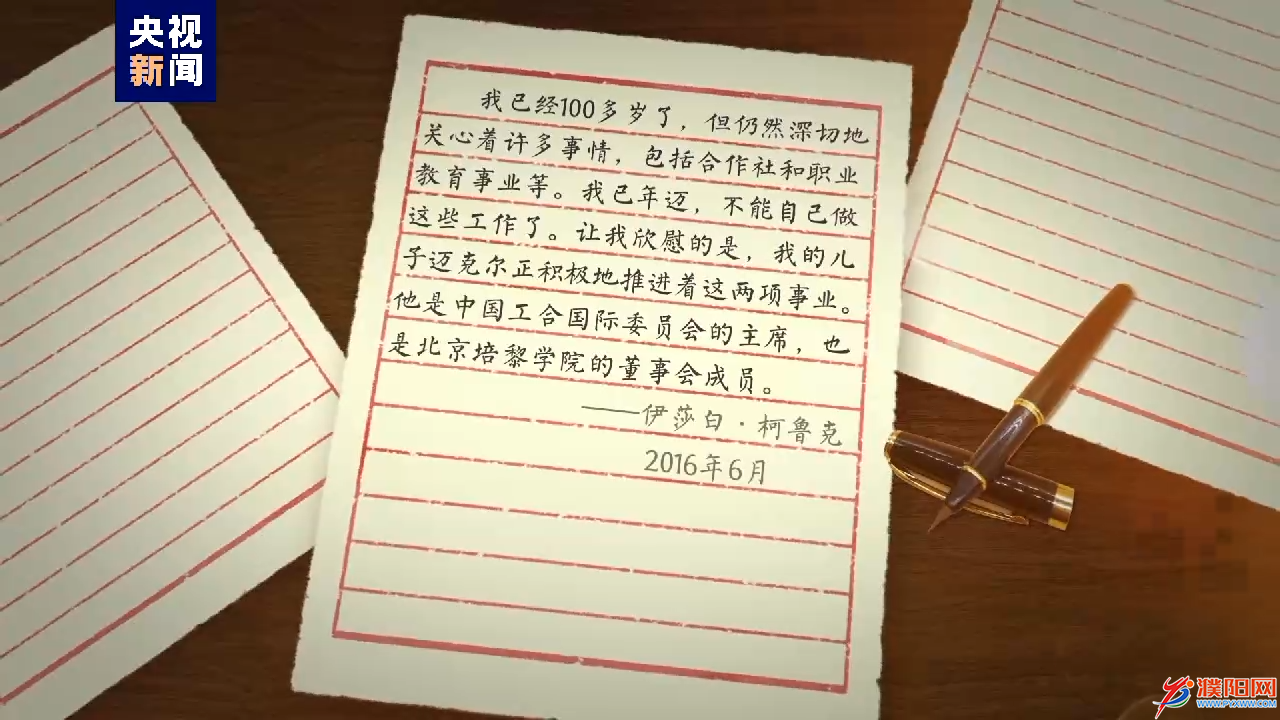 央视
新闻
我已经100多岁了，但仍然深切地
关心着许多事情，包括合作社和职业
教育事业等。我已年迈，不能自己做
这些工作了。让我欣慰的是，我的儿
子迈克尔正积极地推进着这两项事业。
他是中国工合国际委员会的主席，也
是北京培黎学院的董事会成员。
——伊莎白·柯鲁克
2016年6月
濮阳网
WWW.PYXWW.COM